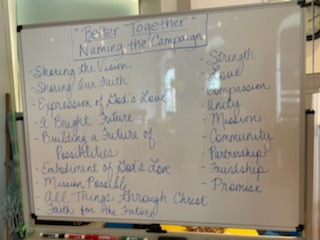 "Better Together"
Naming the Campaign
- Sharing the Vision
- Sharing Our Faith
- Expression of God's Love
- A Bright Future
- Building a Future of
Possibilities
- Embodiment of God's Love
- Mission Possible
- All Things through Christ
- Faith for the Future
- Strength
- Love
- Compassion
- Unity
- Mission
- Community
- Partnership
- Friendship
- Promise